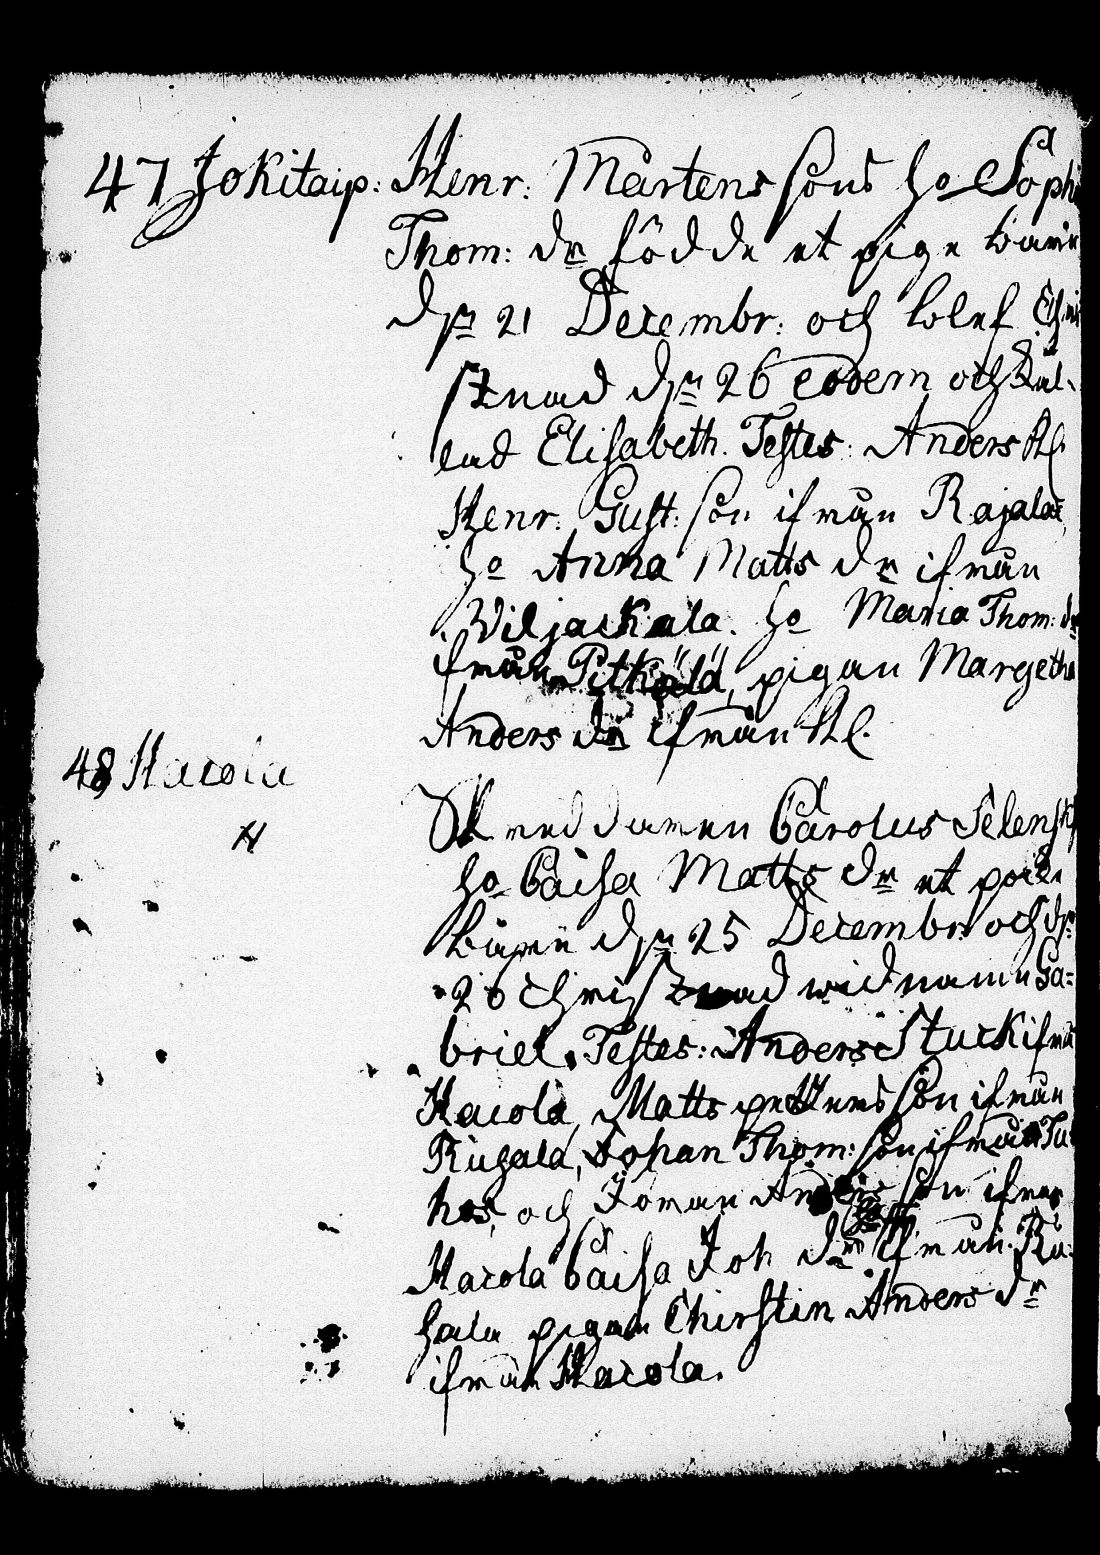 47 Jokitaip: Henr: Mårtens sons ho Soph
Thom: dr födde et pige barn
dn 21 Decembr: och blef Chri
stnad dn 26 eodem och kal-
lad Elisabeth. Testes: Anders
Henr: Gust: son ifrån Rajala,
ho Anna Matts dr ifrån
Wiljackala. ho Maria Thom: dr
ifrån Pitkälä, pigan Margetha
Anders dr ifrån
48 Hacola
Skreddaren Carolus Selensk
H
ho Caisa Matts dr et poike
barn dn 25 Decembr: och dn
26 Christnad wid namn Ga=
briel. Testes: Anders Stuck ifrå
Hacola, Matts petters son ifrån
Rugala, Johan Thom: son ifrån Tu
hos, och Joran Anders son ifrån
Hacola Caisa Joh dr ifrån Ru:
hala pigan Chirstin Anders dr
ifrån Hacola.